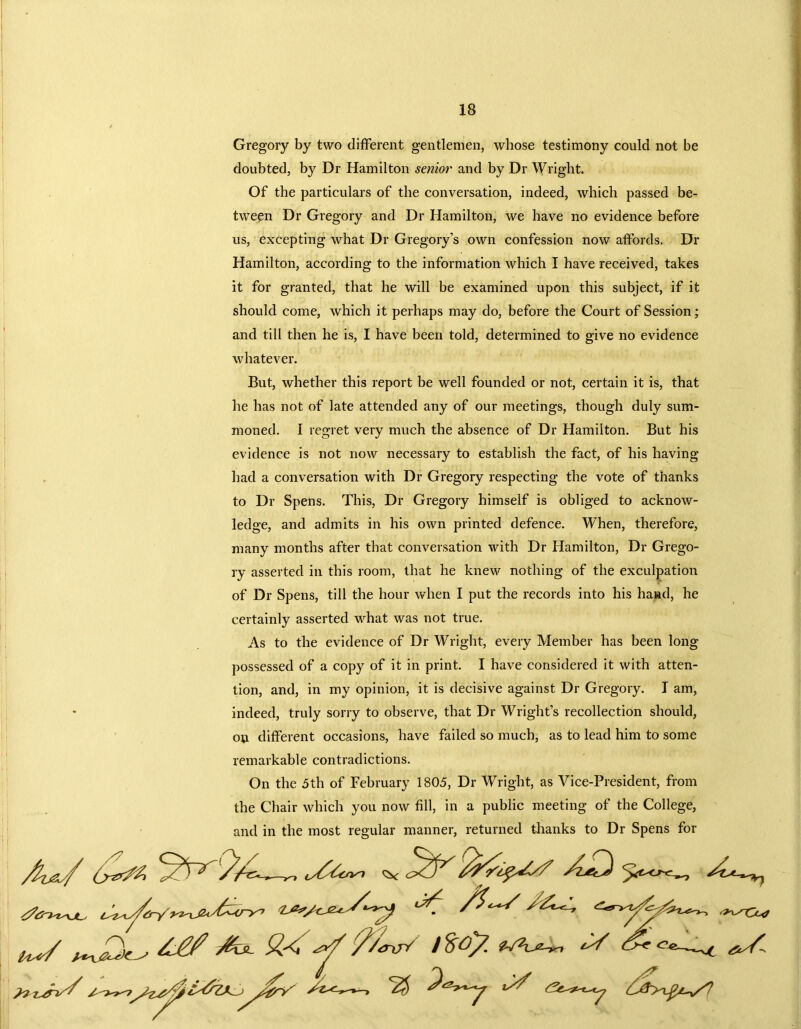 18
Gregory by two different gentlemen, whose testimony could not be
doubted, by Dr Hamilton senior and by Dr Wright.
Of the particulars of the conversation, indeed, which passed be-
tween Dr Gregory and Dr Hamilton, we have no evidence before
us, excepting what Dr Gregory's own confession now affords. Dr
Hamilton, according to the information which I have received, takes
it for granted, that he will be examined upon this subject, if it
should come, which it perhaps may do, before the Court of Session;
and till then he is, I have been told, determined to give no evidence
whatever.
But, whether this report be well founded or not, certain it is, that
he has not of late attended any of our meetings, though duly sum-
moned. I regret very much the absence of Dr Hamilton. But his
evidence is not now necessary to establish the fact, of his having
had a conversation with Dr Gregory respecting the vote of thanks
to Dr Spens. This, Dr Gregory himself is obliged to acknow-
ledge, and admits in his own printed defence. When, therefore,
many months after that conversation with Dr Hamilton, Dr Grego-
ry asserted in this room, that he knew nothing of the exculpation
of Dr Spens, till the hour when I put the records into his hand, he
certainly asserted what was not true.
As to the evidence of Dr Wright, every Member has been long
possessed of a copy of it in print. I have considered it with atten-
tion, and, in my opinion, it is decisive against Dr Gregory. I am,
indeed, truly sorry to observe, that Dr Wright's recollection should,
on different occasions, have failed so much, as to lead him to some
remarkable contradictions.
On the 5th of February 1805, Dr Wright, as Vice-President, from
the Chair which you now fill, in a public meeting of the College,
and in the most regular manner, returned thanks to Dr Spens for
that both Dr & Dr Wright had given him
some information respecting it. But this was
not made till the 24 of Novr 1807. when it became al-
most impossible for him to deny it any longer